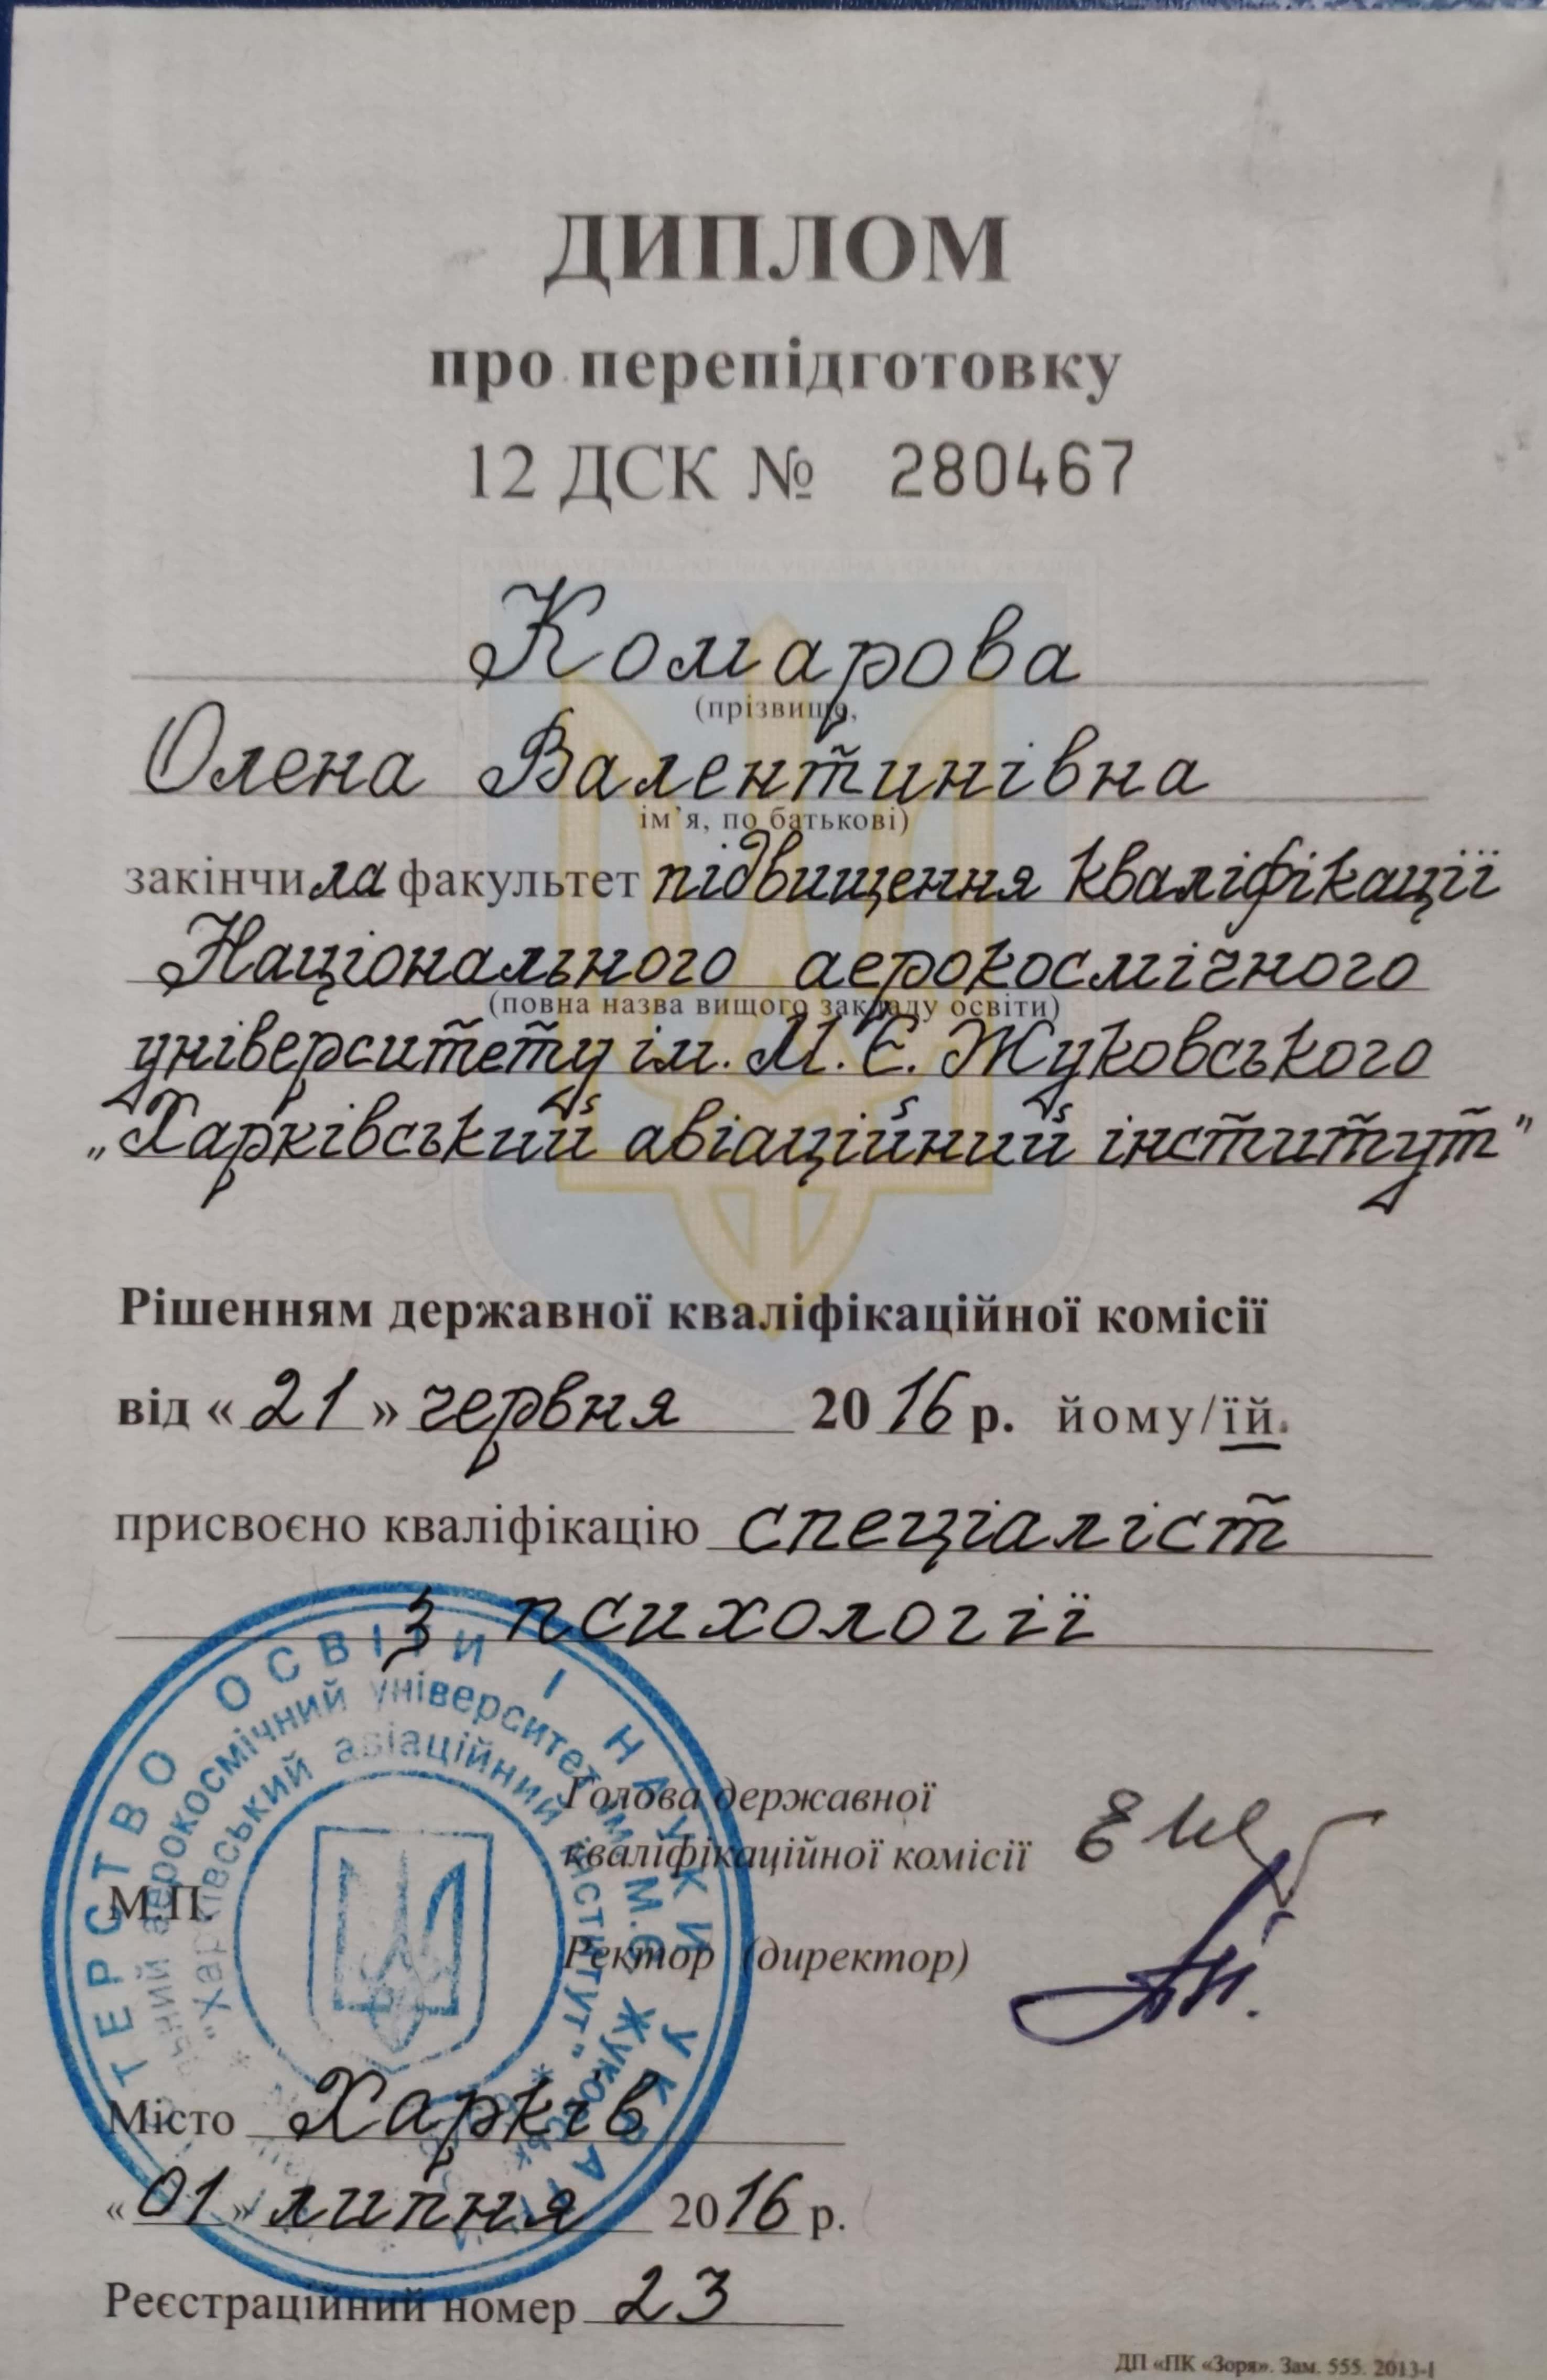 ДИПЛОМ
про перепідготовку
12 ДСК № 280467
Комарова
(прізвище,
Олена Валентинівна
ім'я, по батькові)
закінчила факультет підвищення кваліфікації
Національного аерокосмічного
(повна назва вищого закладу освіти)
університету ім. М.Є. Жуковського
„Харківський авіаційний інститут"
Рішенням державної кваліфікаційної комісії
від «21» червня 2016 р. йому/їй
присвоєно кваліфікацію спеціаліст
з психології
ТЕРСТВО ОСВІТИ І НАУКИ УКРАЇ
аерокосмічний університет ім. М.Є. Жуковс
"Харківський авіаційний інститут"
Голова державної
кваліфікаційної комісії
М.П.
Ректор (директор)
Місто Харків
«01» липня 2016 р.
Реєстраційний номер 23
ДП «ПК «Зоря». Зам. 555. 2013-І